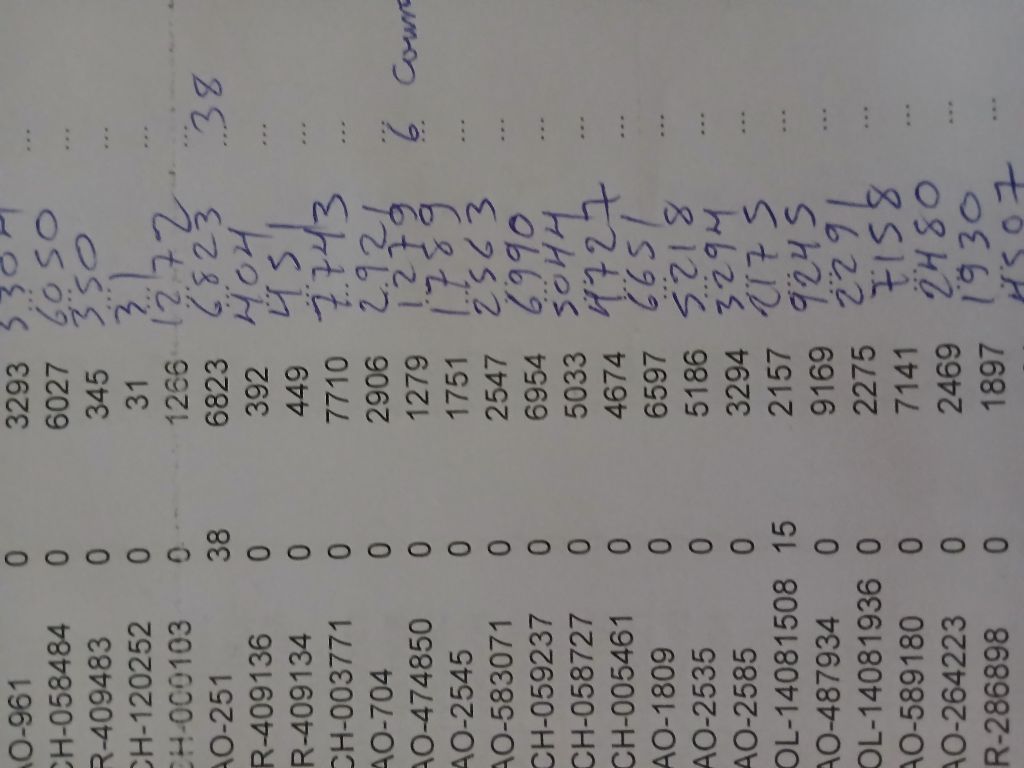 AO-961 0 3293 ...
CH-058484 0 6027 6050 ...
R-409483 0 345 350 ...
CH-120252 0 31 31 ...
CH-000103 0 1266 1272 ...
AO-251 38 6823 6823 ... 38
R-409136 0 392 404 ...
R-409134 0 449 451 ...
CH-003771 0 7710 7743 ...
AO-704 0 2906 2921 ...
AO-474850 0 1279 1279 ... 6
AO-2545 0 1751 1789 ...
AO-583071 0 2547 2563 ...
CH-059237 0 6954 6990 ...
CH-058727 0 5033 5044 ...
CH-005461 0 4674 4727 ...
AO-1809 0 6597 6651 ...
AO-2535 0 5186 5218 ...
AO-2585 0 3294 3294 ...
OL-14081508 15 2157 2175 ...
AO-487934 0 9169 9245 ...
OL-14081936 0 2275 2291 ...
AO-589180 0 7141 7158 ...
AO-264223 0 2469 2480 ...
R-286898 0 1897 1930 ...
4507